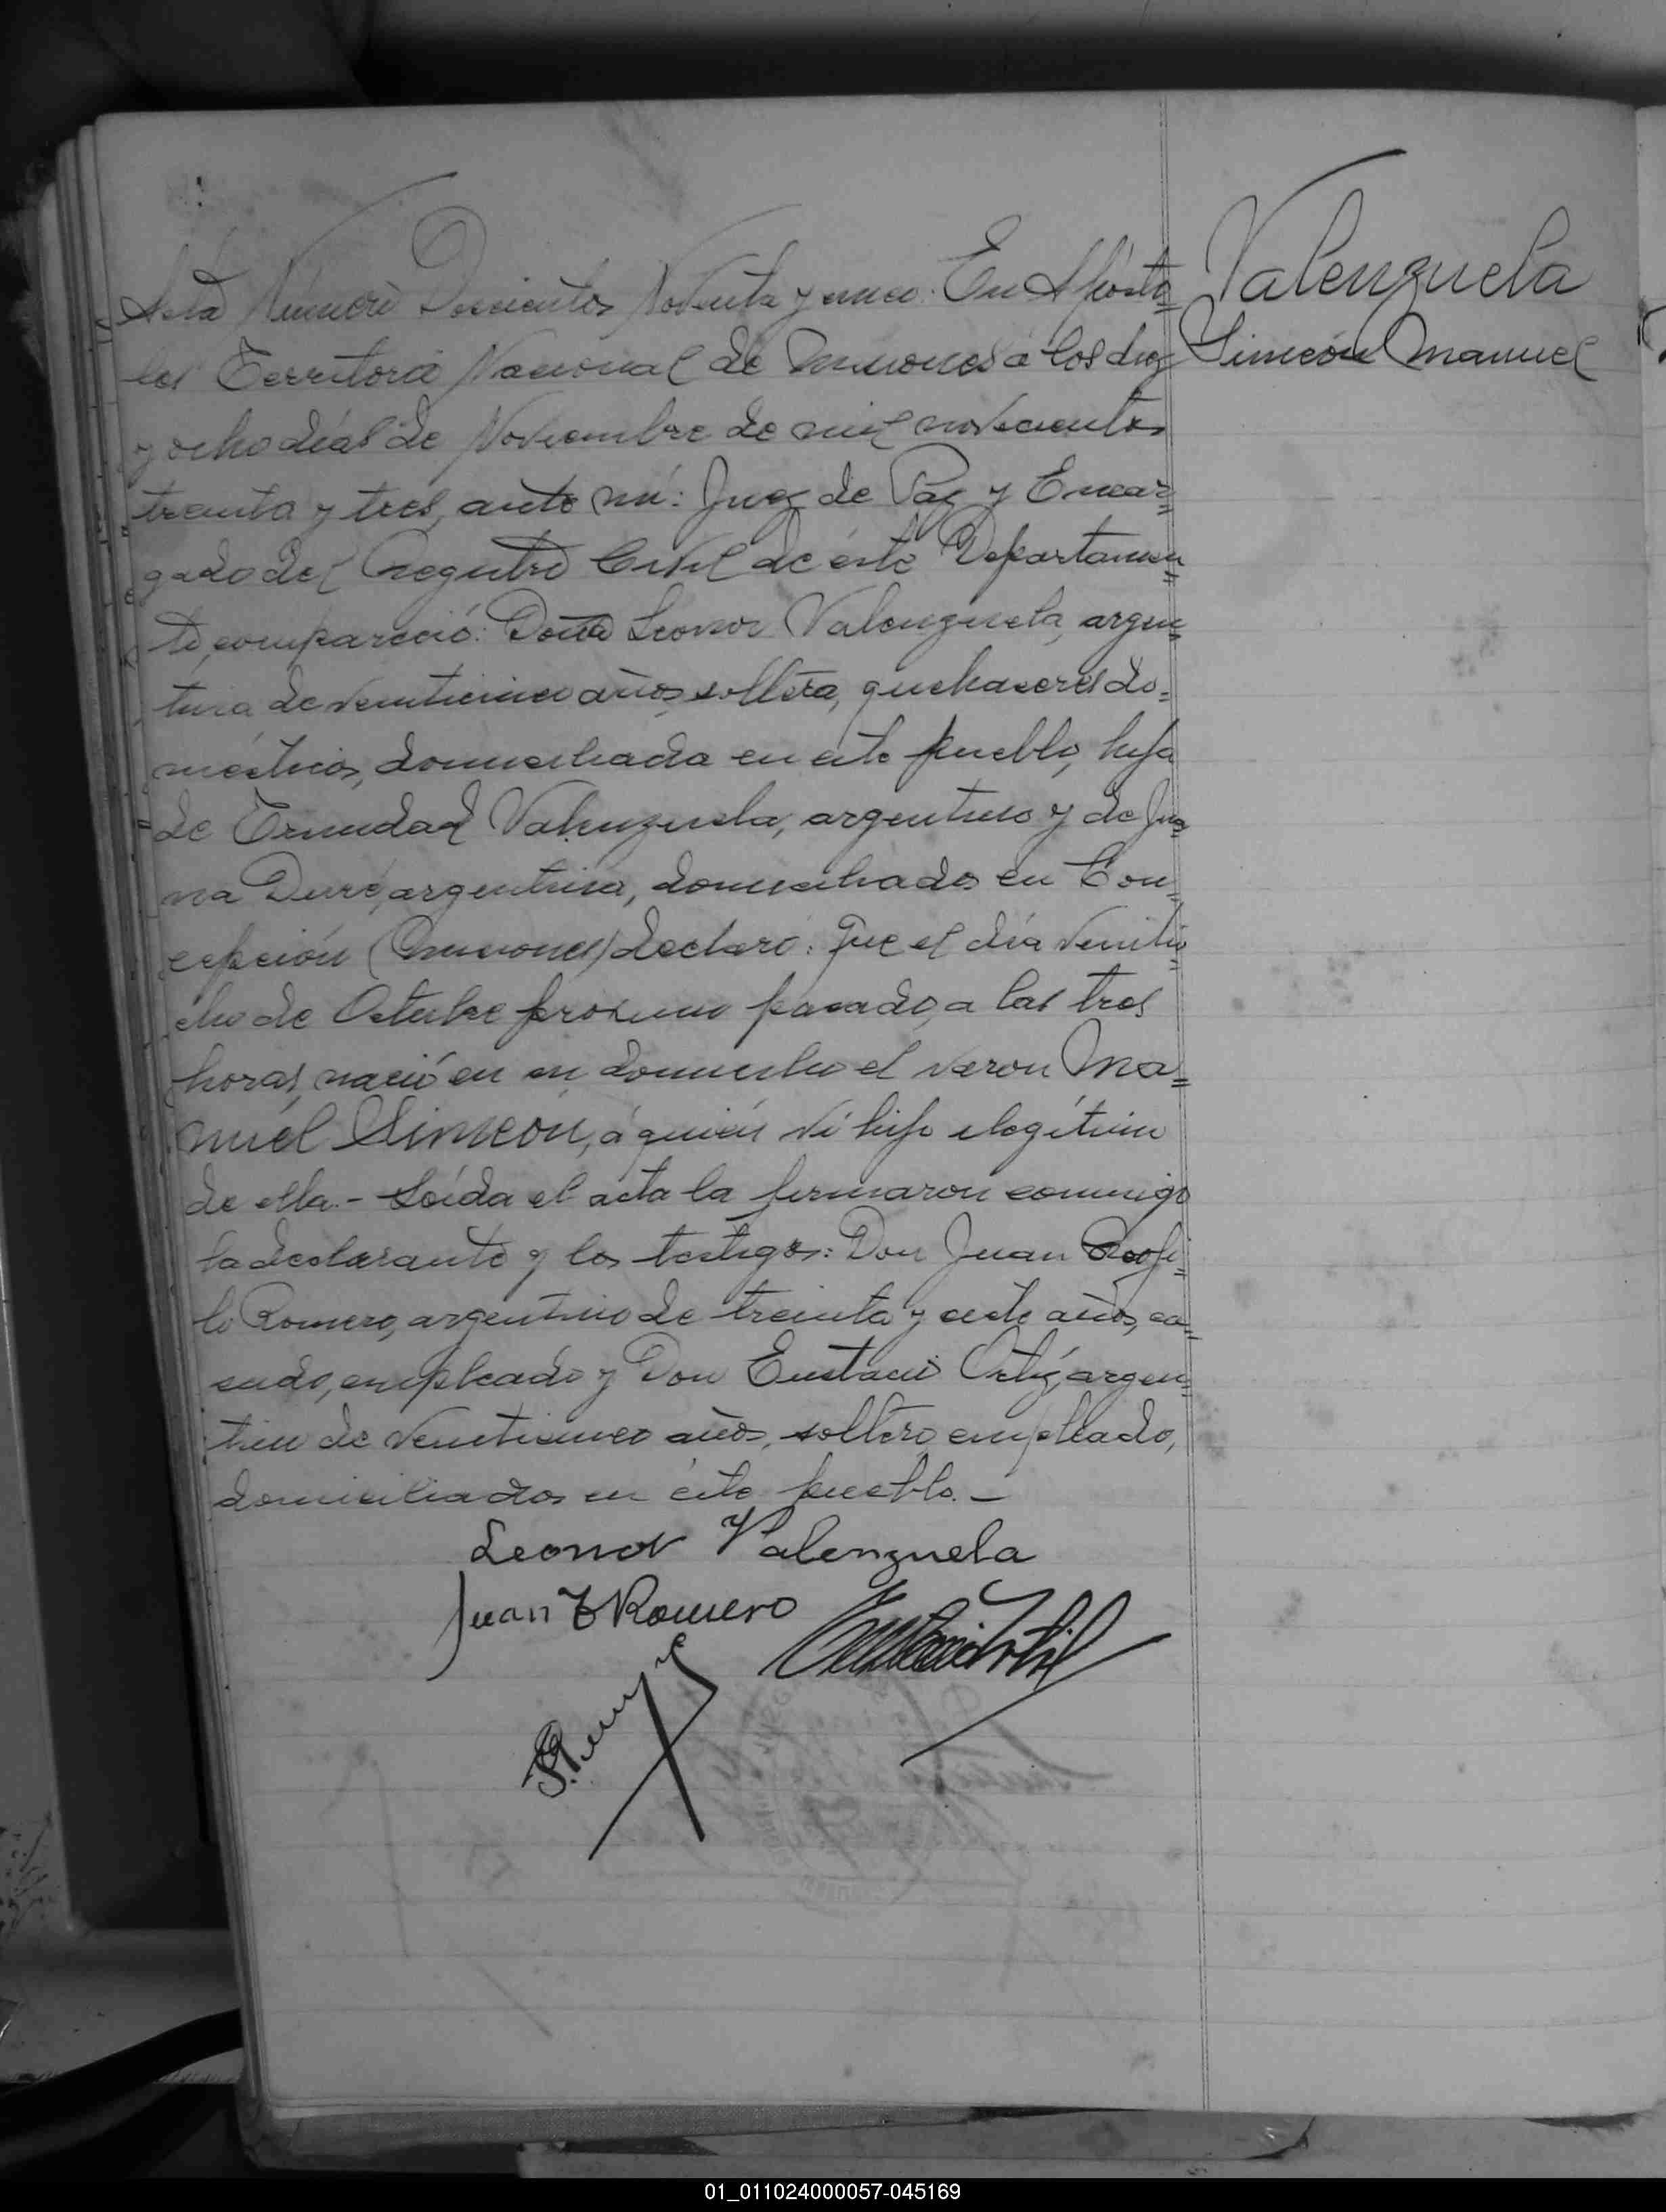 Acta Número Doscientos Noventa y cinco. En Apósto=
les Territorio Nacional de Misiones á los diez
y ocho días de Noviembre de mil novecientos
treinta y tres, ante mí: Juez de Paz y Encar=
gado del Registro Civil de éste Departamen=
to, compareció: Doña Leonor Valenzuela, argen=
tina de veinticinco años, soltera, quehaceres do=
mésticos, domiciliada en este pueblo, hija
de Trinidad Valenzuela, argentino y de Jua=
na Duré, argentina, domiciliados en Con=
cepción (Misiones) declaró: Que el día veintio=
cho de Octubre próximo pasado, a las tres
horas, nació en su domicilio el varon Ma=
nuel Simeón, á quién vi hijo ilegítimo
de ella.- Leída el acta la firmaron conmigo
la declarante y los testigos: Don Juan Teofi=
lo Romero, argentino de treinta y siete años, ca=
sado, empleado y Don Eustacio Ortiz, argen=
tino de veinticinco años, soltero, empleado,
domiciliados en éste pueblo.-
Leonor Valenzuela
Juan T Romero
Eustacio Ortiz
Valenzuela
Simeón Manuel
01_011024000057-045169